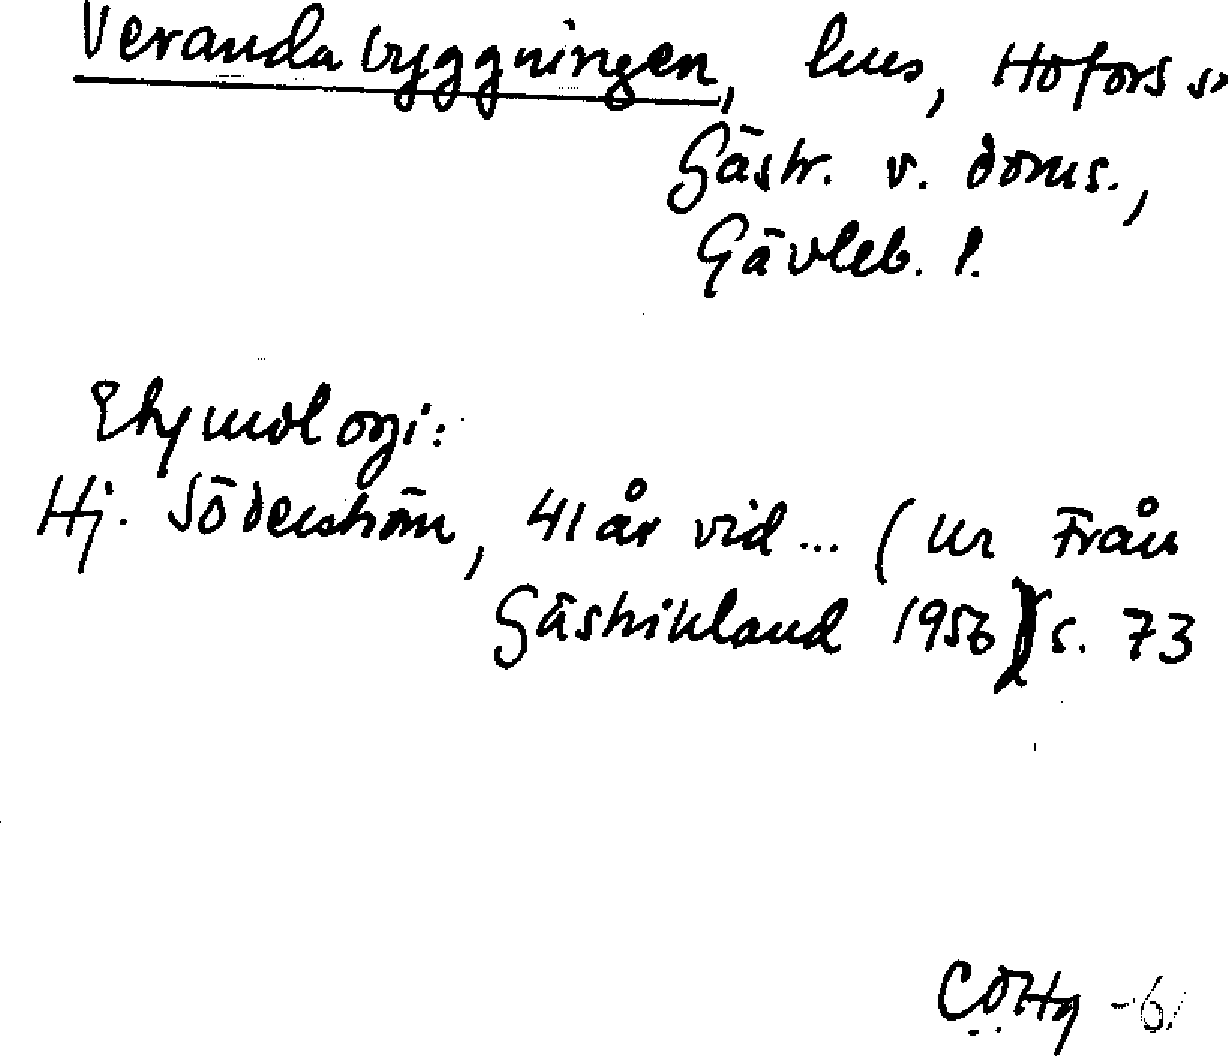 Verandabyggningen, hus, Hofors sn
Gästr. v. doms.,
Gävleb. l.
Etymologi:
Hj. Söderström, 41 år vid... (ur Från
Gästrikland 1956) s. 73